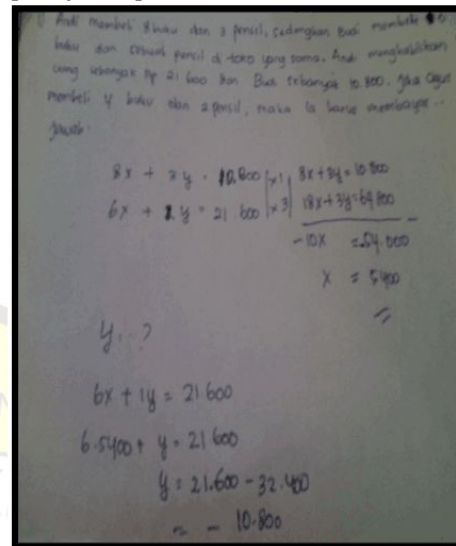 Andi membeli 8 buku dan 3 pensil, sedangkan Budi membeli
buku dan sebuah pensil di toko yang sama. Andi menghabiskan
uang sebanyak Rp 21.600 dan Budi sebanyak 10.800. Jika Agus
membeli 4 buku dan 2 pensil, maka ia harus membayar...
Jawab:
8x + 3y = 10.800 |x1| 8x+3y = 10.800
6x + 1y = 21.600 |x3| 18x+3y = 64.800 -
-10x = 54.000
x = 5400
y = ?
6x + 1y = 21.600
6.5400 + y = 21.600
y = 21.600 - 32.400
= - 10.800